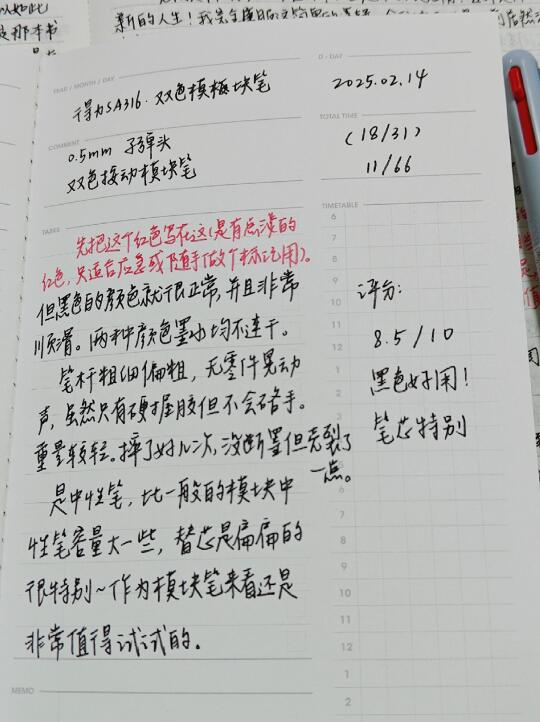 YEAR / MONTH / DAY
得力SA316.双色模板块笔
D - DAY
2025.02.14
COMMENT
0.5mm 子弹头
双色按动模块笔
TOTAL TIME
(18/31)
11/66
TASKS
先把这个红色写在这(是有点淡的
红色,只适合应急或随手做个标记用)。
但黑色的颜色就很正常,并且非常
顺滑。两种颜色墨水均不速干。
笔杆粗细偏粗,无零件晃动
声,虽然只有硬握胶但不会硌手。
重量较轻。摔了好几次,没断墨但壳裂了
一点。
是中性笔,比一般的模块中
性笔容量大一些,替芯是扁扁的
很特别~作为模块笔来看还是
非常值得试试的.
TIMETABLE
6
7
8
9
10
11
12
1
2
3
评分:
8.5/10
黑色好用!
笔芯特别
6
7
8
9
10
11
12
1
2
MEMO